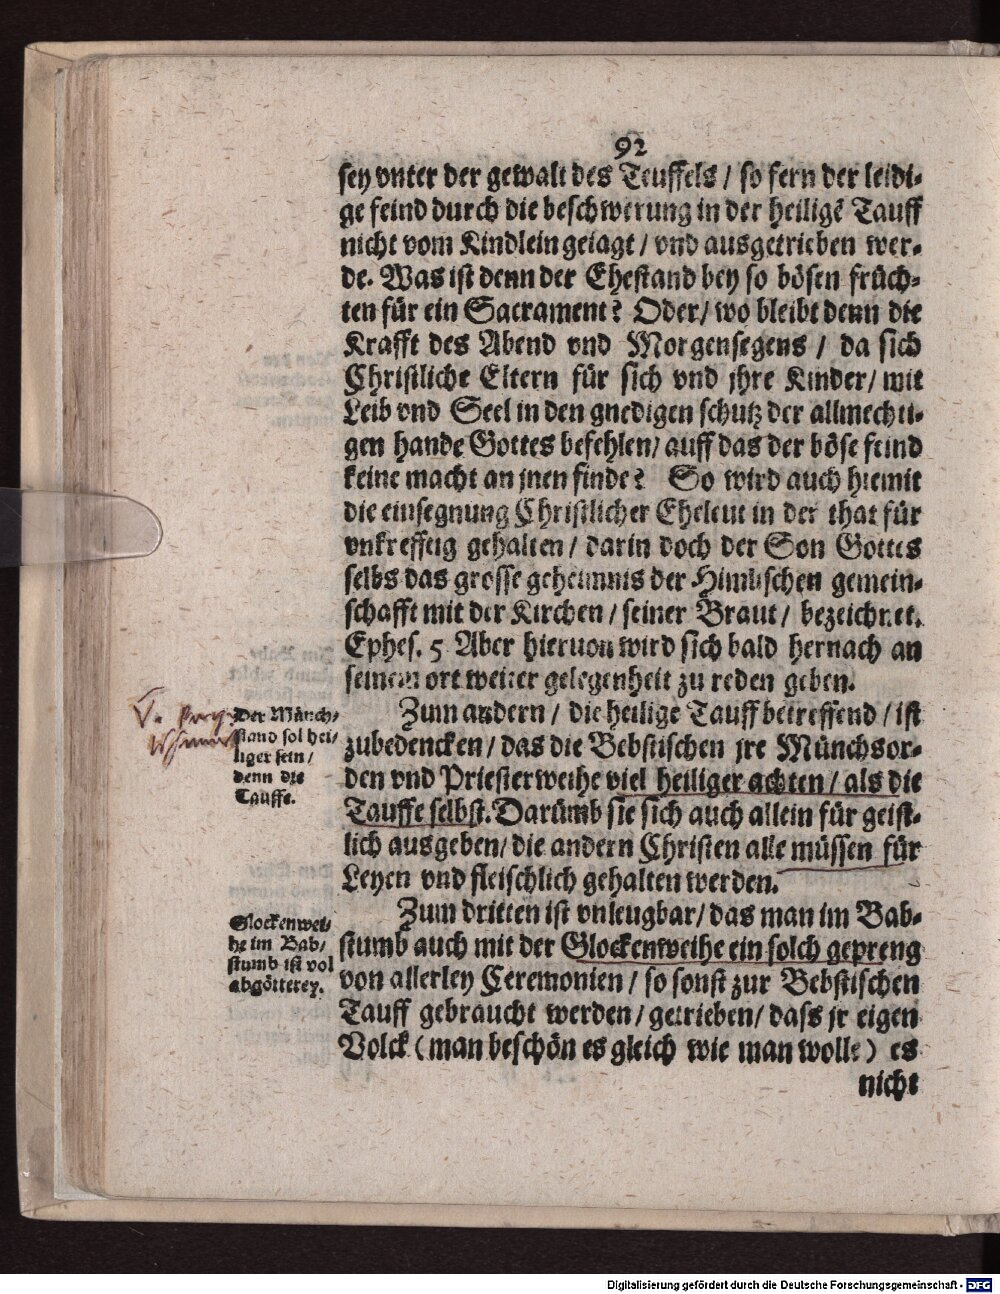 92
sey vnter der gewalt des Teuffels / so fern der leidi-
ge feind durch die beschwerung in der heiligē Tauff
nicht vom Kindlein geiagt / vnd ausgetrieben wer-
de. Was ist denn der Ehestand bey so bösen früch-
ten für ein Sacrament? Oder / wo bleibt denn die
Krafft des Abend vnd Morgensegens / da sich
Christliche Eltern für sich vnd jhre Kinder / mit
Leib vnd Seel in den gnedigen schutz der allmechti-
gen hande Gottes befehlen / auff das der böse feind
keine macht an jnen finde? So wird auch hiemit
die einsegnung Christlicher Eheleut in der that für
vnkrefftig gehalten / darin doch der Son Gottes
selbs das grosse geheimnis der Himlischen gemein-
schafft mit der Kirchen / seiner Braut / bezeichnet.
Ephes. 5 Aber hieruon wird sich bald hernach an
seinem ort weiter gelegenheit zu reden geben.
Der Münch-
stand sol hei-
liger sein /
denn die
Tauffe.
Zum andern / die heilige Tauff betreffend / ist
zubedencken / das die Bebstischen jre Münchsor-
den vnd Priesterweihe viel heiliger achten / als die
Tauffe selbst. Darümb sie sich auch allein für geist-
lich ausgeben / die andern Christen alle müssen für
Leyen vnd fleischlich gehalten werden.
Glockenwei-
he im Bab-
stumb ist vol
abgötterey.
Zum dritten ist vnleugbar / das man im Bab-
stumb auch mit der Glockenweihe ein solch gepreng
von allerley Ceremonien / so sonst zur Bebstischen
Tauff gebraucht werden / getrieben / dass jr eigen
Volck (man beschön es gleich wie man wolle) es
nicht
Digitalisierung gefördert durch die Deutsche Forschungsgemeinschaft - DFG